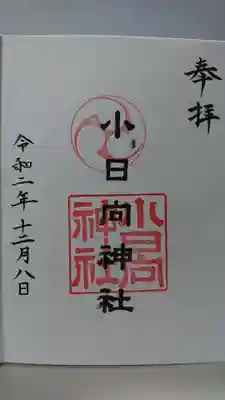 奉拝
小日向神社
神社
令和二年十二月八日